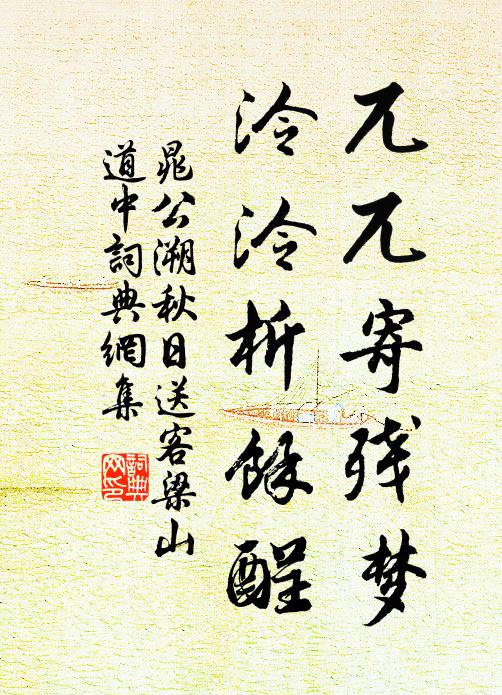 兀兀寄残梦
泠泠析餘酲
晁公溯秋日送客梁山
道中詞典網集
詞典
网印